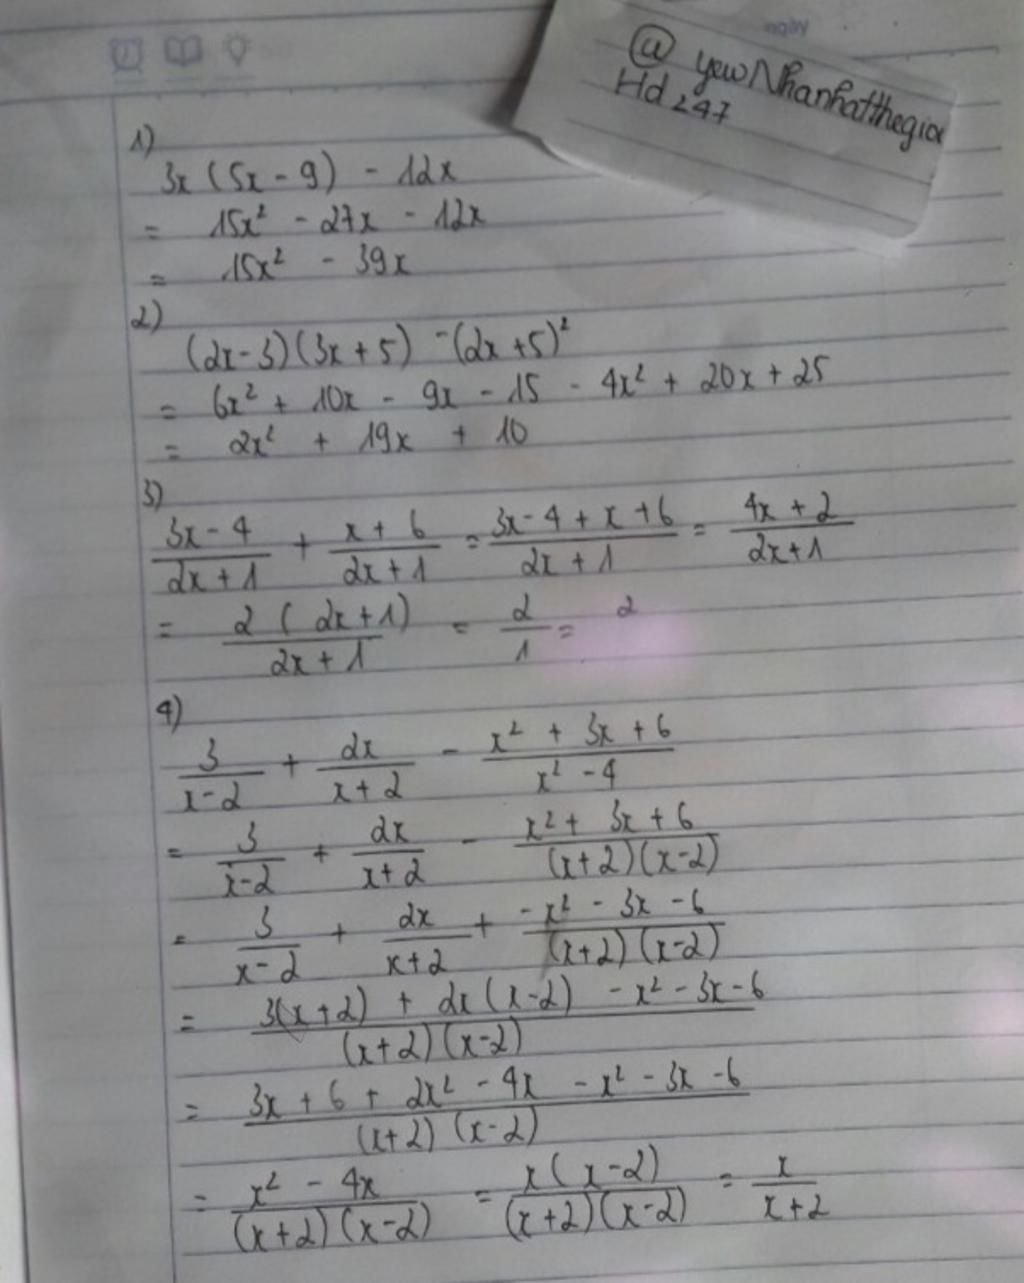 ngày
@ yewNhanhatthegioi
Hd 247
1)
3x (5x - 9) - 12x
= 15x² - 27x - 12x
= 15x² - 39x
2)
(2x - 3)(3x + 5) - (2x + 5)²
= 6x² + 10x - 9x - 15 - 4x² + 20x + 25
= 2x² + 19x + 10
3)
(3x - 4)/(2x + 1) + (x + 6)/(2x + 1) = (3x - 4 + x + 6)/(2x + 1) = (4x + 2)/(2x + 1)
= 2 (2x + 1)/(2x + 1) = 2/1 = 2
4)
3/(x - 2) + 2x/(x + 2) - (x² + 3x + 6)/(x² - 4)
= 3/(x - 2) + 2x/(x + 2) - (x² + 3x + 6)/((x + 2)(x - 2))
= 3/(x - 2) + 2x/(x + 2) + (-x² - 3x - 6)/((x + 2)(x - 2))
= (3(x + 2) + 2x (x - 2) - x² - 3x - 6)/((x + 2)(x - 2))
= (3x + 6 + 2x² - 4x - x² - 3x - 6)/((x + 2)(x - 2))
= (x² - 4x)/((x + 2)(x - 2)) = x (x - 2)/((x + 2)(x - 2)) = x/(x + 2)